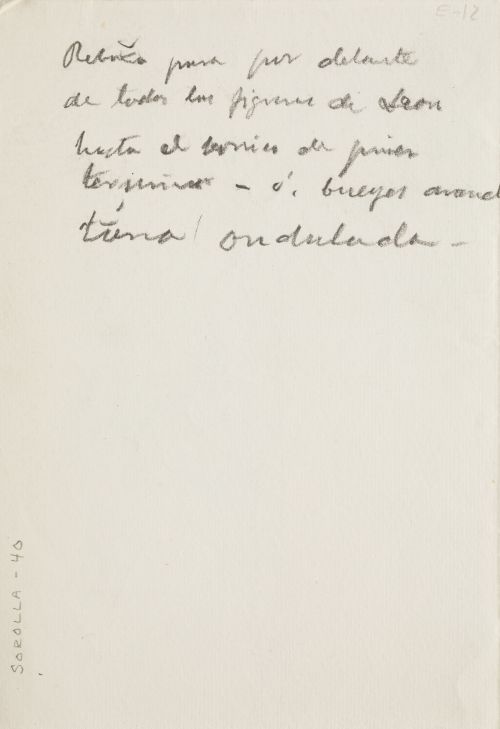 E-12
Rebaño pasa por delante
de todas las figuras de Leon
hasta el borrico de primer
termino - ó, bueyes arand
tierra ondulada -
SOROLLA - 40